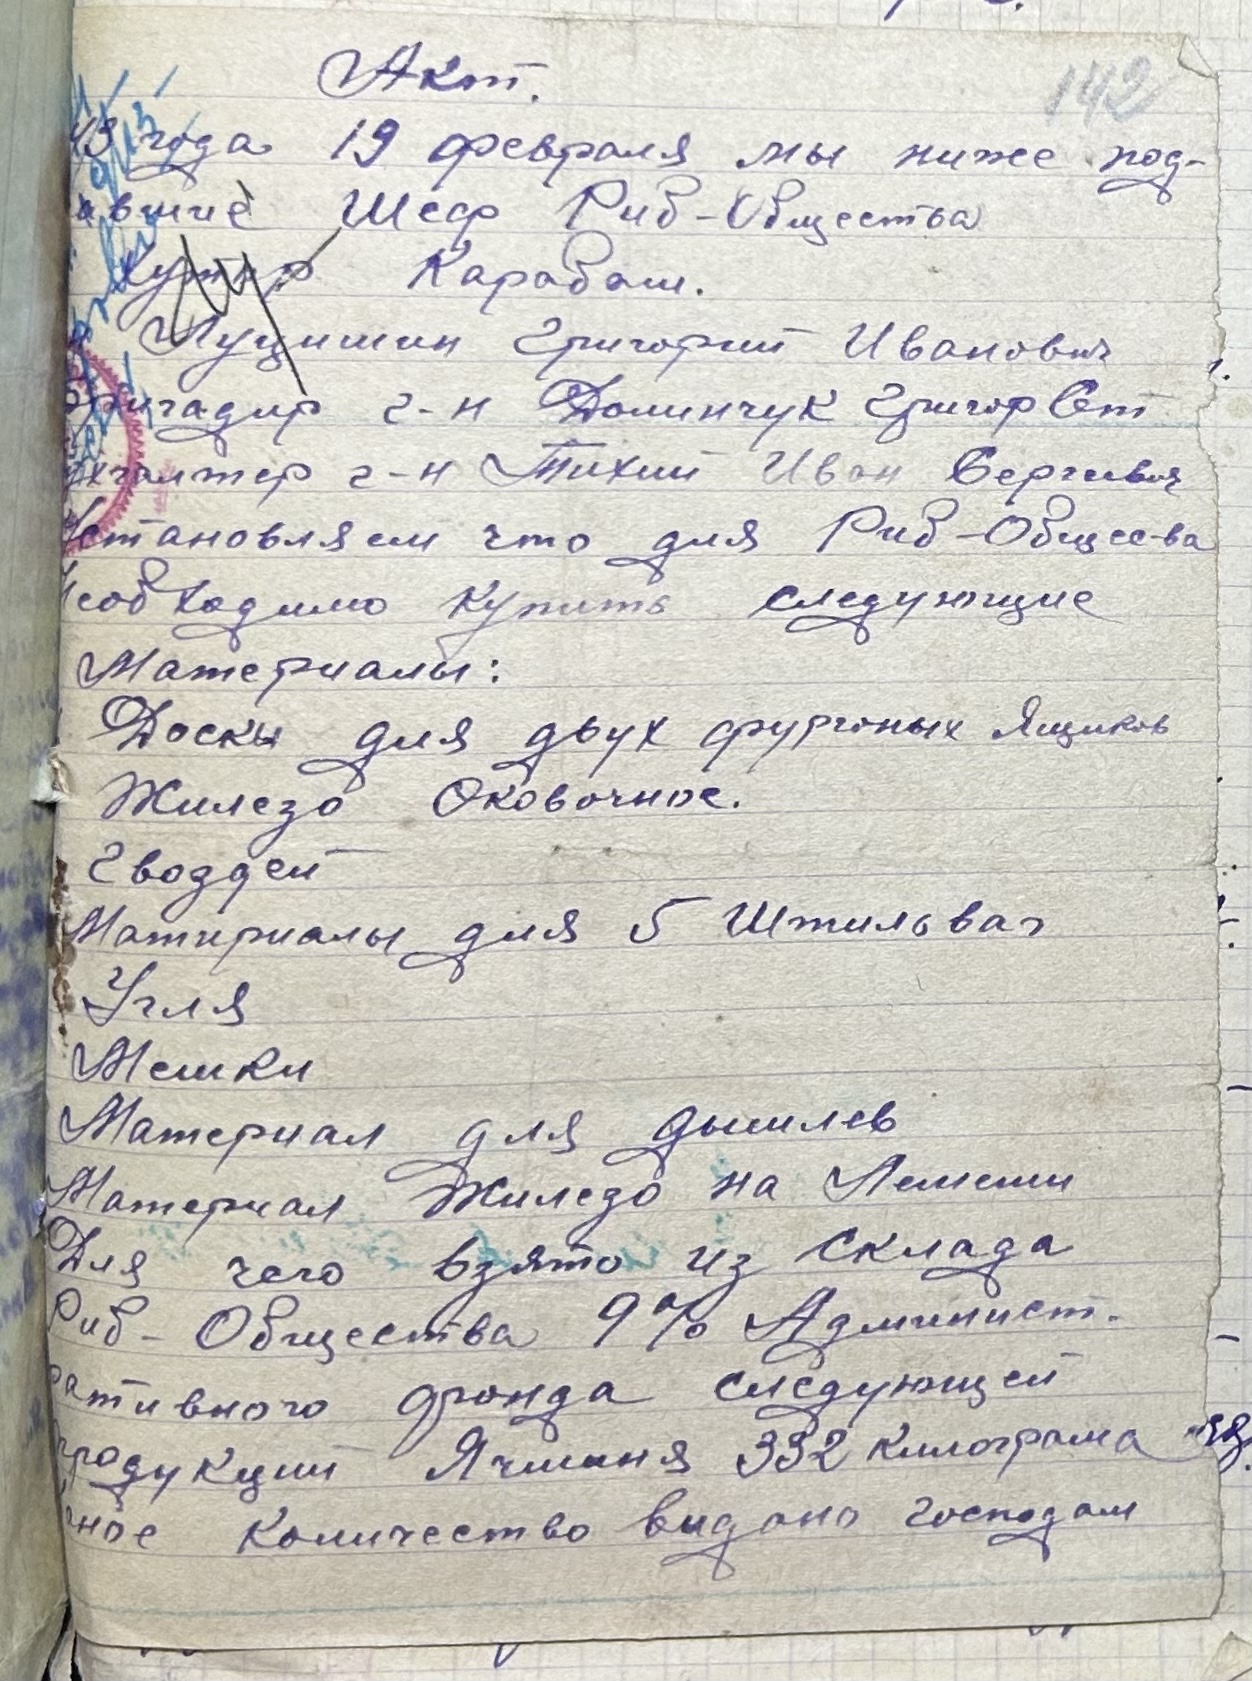 142
Акт.
43 года 19 февраля мы ниже под-
авшие Шеф Риб-Общества
Хутор Карабаш.
Луцишин Григорий Иванович
Бригадир г-н Долинчук Григор
г-н Тихий Иван Сергивич
Установляем что для Риб-Общесва
Необходимо купить следующие
Материалы:
Доски для двух фургоных Ящиков
Жилезо Оковочное.
Гвоздей
Материалы для 5 Штильваг
Угля
Мешки
Материал для дышлев
Материал Жилезо на Лемеши
Для чего взято из склада
Риб-Общества 9% Админист.
ративного фонда следующей
продукции Ячминя 332 килограма
чное количество видано господам